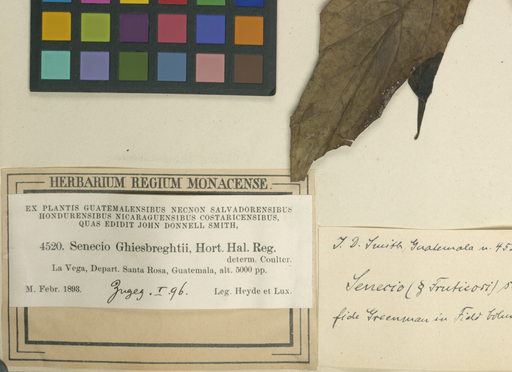 HERBARIUM REGIUM MONACENSE.
EX PLANTIS GUATEMALENSIBUS NECNON SALVADORENSIBUS
HONDURENSIBUS NICARAGUENSIBUS COSTARICENSIBUS,
QUAS EDIDIT JOHN DONNELL SMITH,
4520. Senecio Ghiesbreghtii, Hort. Hal. Reg.
determ. Coulter.
La Vega, Depart. Santa Rosa, Guatemala, alt. 5000 pp.
M. Febr. 1893. Zugeg. I 96. Leg. Heyde et Lux.
J. D. Smith Guatemala n. 452
Senecio (§ Fruticosi) s
fide Greenman in Field